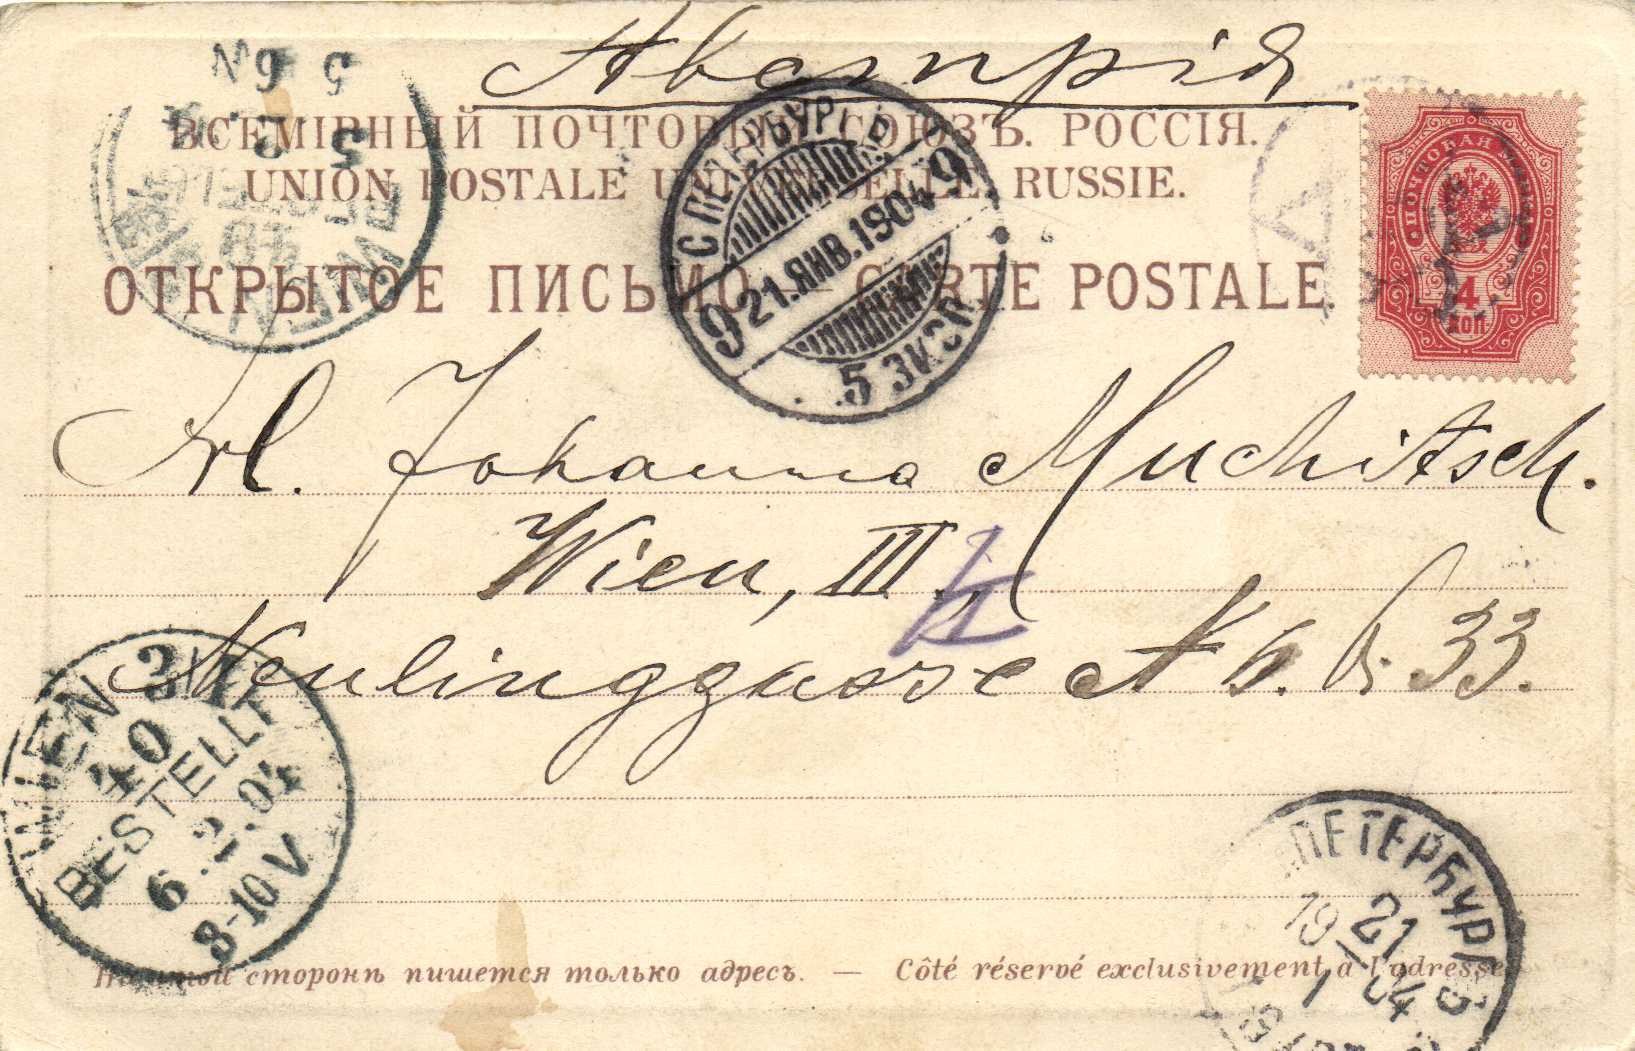 Австрія
ВСЕМІРНЫЙ ПОЧТОВЫЙ СОЮЗЪ. РОССІЯ.
UNION POSTALE UNIVERSELLE. RUSSIE.
ОТКРЫТОЕ ПИСЬМО. — CARTE POSTALE.
ПОЧТОВАЯ МАРКА
4
КОП.
С ПЕТЕРБУРГЪ
9 21.ЯНВ.1904 9
5 ЭКСП.
Frl. Johanna Muchitsch.
Wien, III
Neulinggasse № 33.
WIEN 3/1
40
BESTELLT
6.2.04
8-10V
ПЕТЕРБУРГ
21
1904
1
На этой сторонѣ пишется только адресъ. — Côté réservé exclusivement à l'adresse.